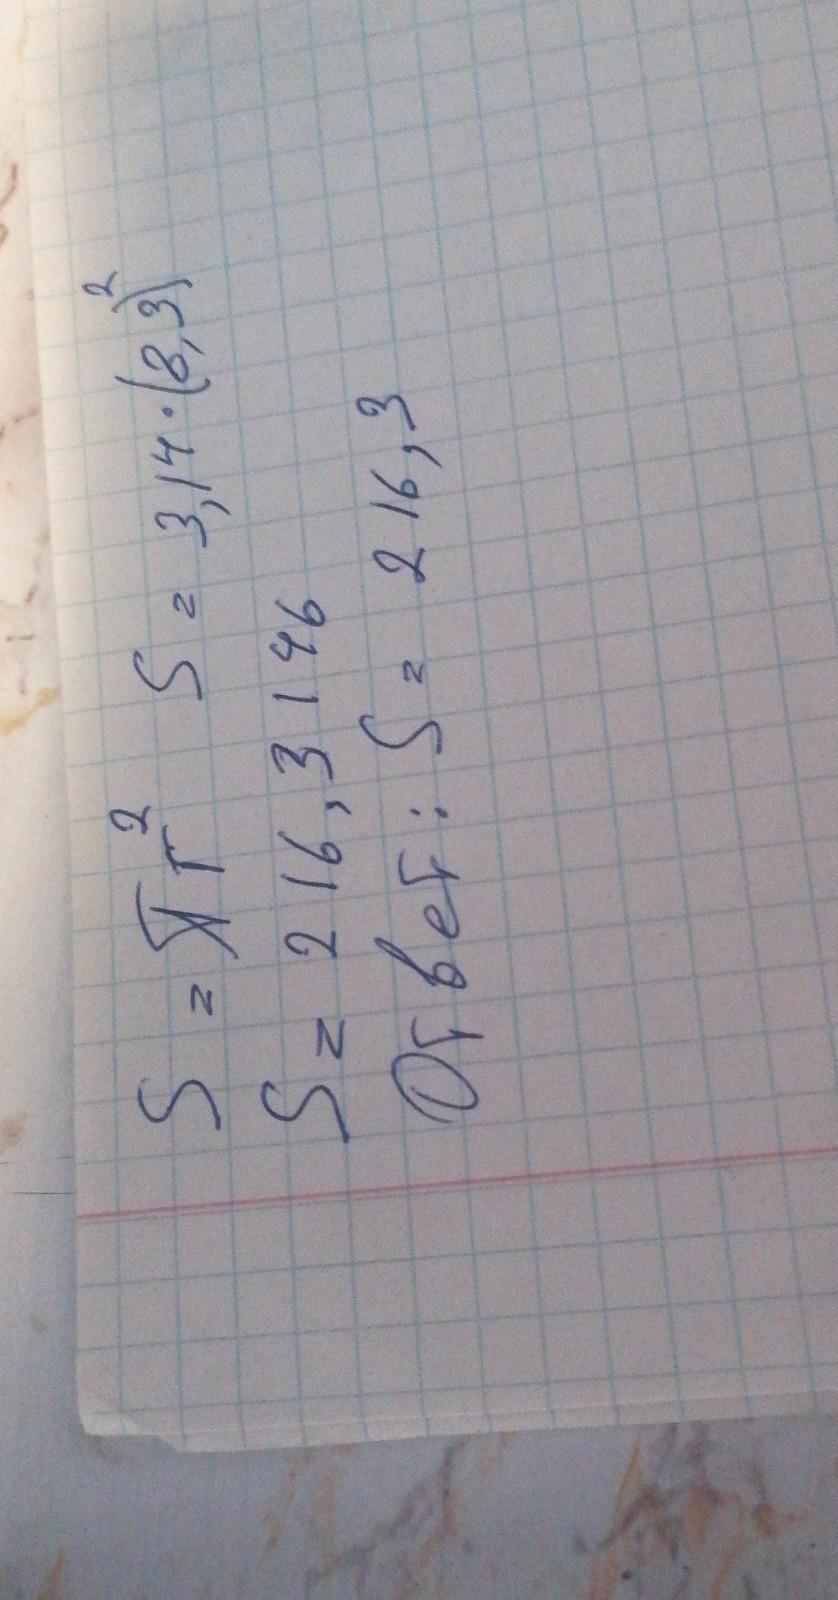 S = πr² S = 3,14·(8,3)²
S = 216,3146
Ответ: S = 216,3